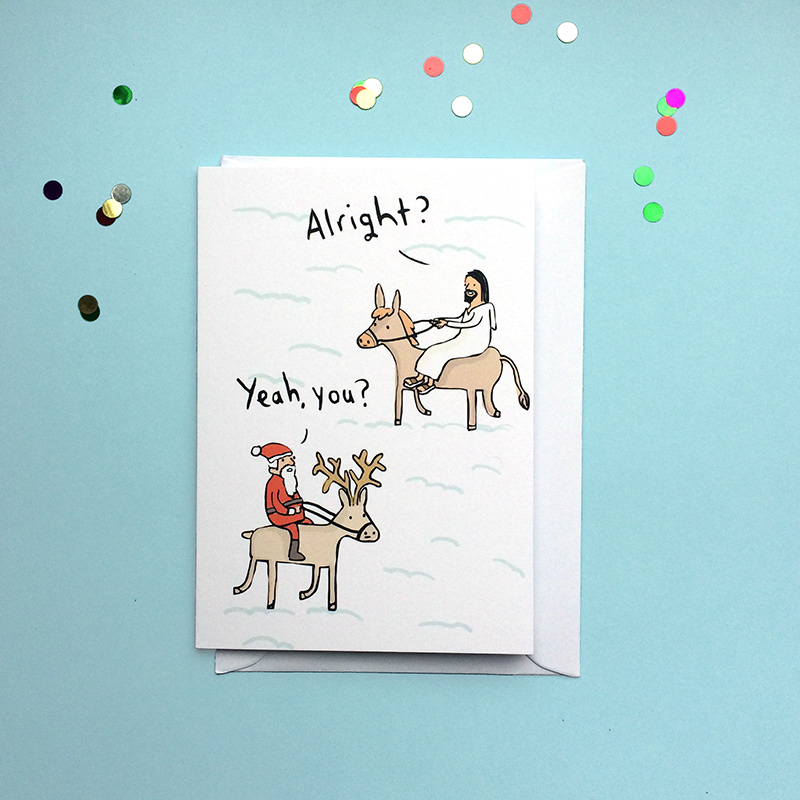 Alright?
Yeah, you?